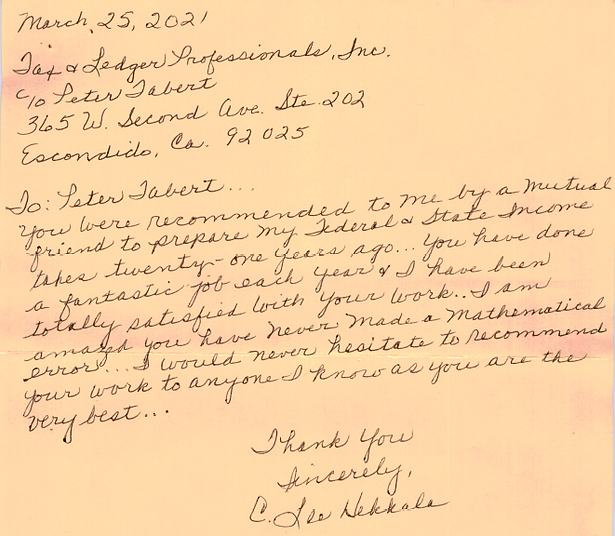 March, 25, 2021
Tax & Ledger Professionals, Inc.
c/o Peter Tabert
365 W. Second Ave. Ste. 202
Escondido, Ca. 92025
To: Peter Tabert...
You were recommended to me by a mutual
friend to prepare my Federal & State Income
takes twenty-one years ago... you have done
a fantastic job each year & I have been
totally satisfied with your work.. I am
amazed you have never made a mathematical
error... I would never hesitate to recommend
your work to anyone I know as you are the
very best...
Thank You
Sincerely,
C. Lee Hekkala